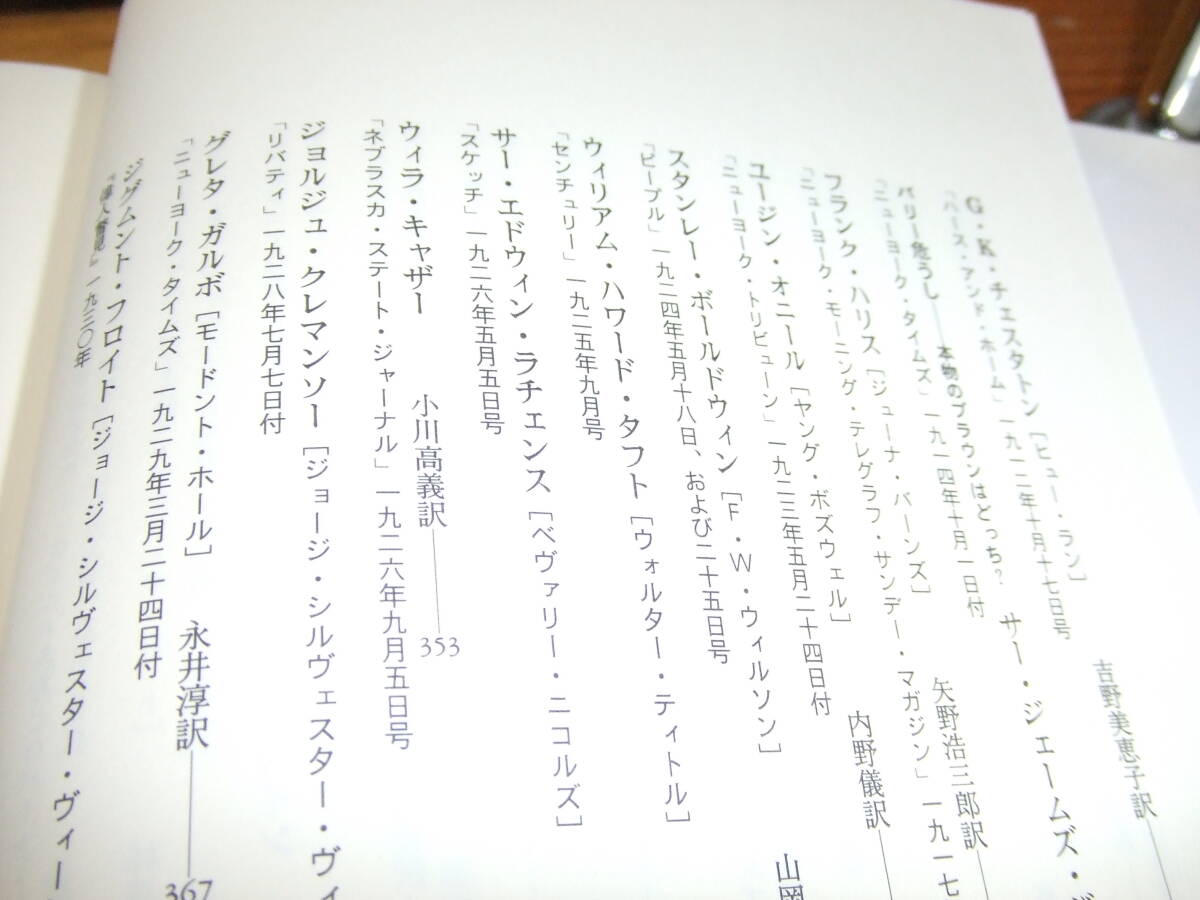 G・K・チェスタトン［ヒュー・ラン］
「ハース・アンド・ホーム」一九一二年十月十七日号
吉野美恵子訳
バリー危うし——本物のブラウンはどっち？　サー・ジェームズ・
「ニューヨーク・タイムズ」一九一四年十月一日付
矢野浩三郎訳
フランク・ハリス［ジューナ・バーンズ］
「ニューヨーク・モーニング・テレグラフ・サンデー・マガジン」一九一七
内野儀訳
ユージン・オニール［ヤング・ボズウェル］
「ニューヨーク・トリビューン」一九二三年五月二十四日付
山岡
スタンレー・ボールドウィン［F・W・ウィルソン］
「ピープル」一九二四年五月十八日、および二十五日号
ウィリアム・ハワード・タフト［ウォルター・ティトル］
「センチュリー」一九二五年九月号
サー・エドウィン・ラチェンス［ベヴァリー・ニコルズ］
「スケッチ」一九二六年五月五日号
ウィラ・キャザー　小川高義訳——353
「ネブラスカ・ステート・ジャーナル」一九二六年九月五日号
ジョルジュ・クレマンソー［ジョージ・シルヴェスター・ヴィ
「リバティ」一九二八年七月七日付
グレタ・ガルボ［モードント・ホール］　永井淳訳——367
「ニューヨーク・タイムズ」一九二九年三月二十四日付
ジグムント・フロイト［ジョージ・シルヴェスター・ヴィー
一九三〇年